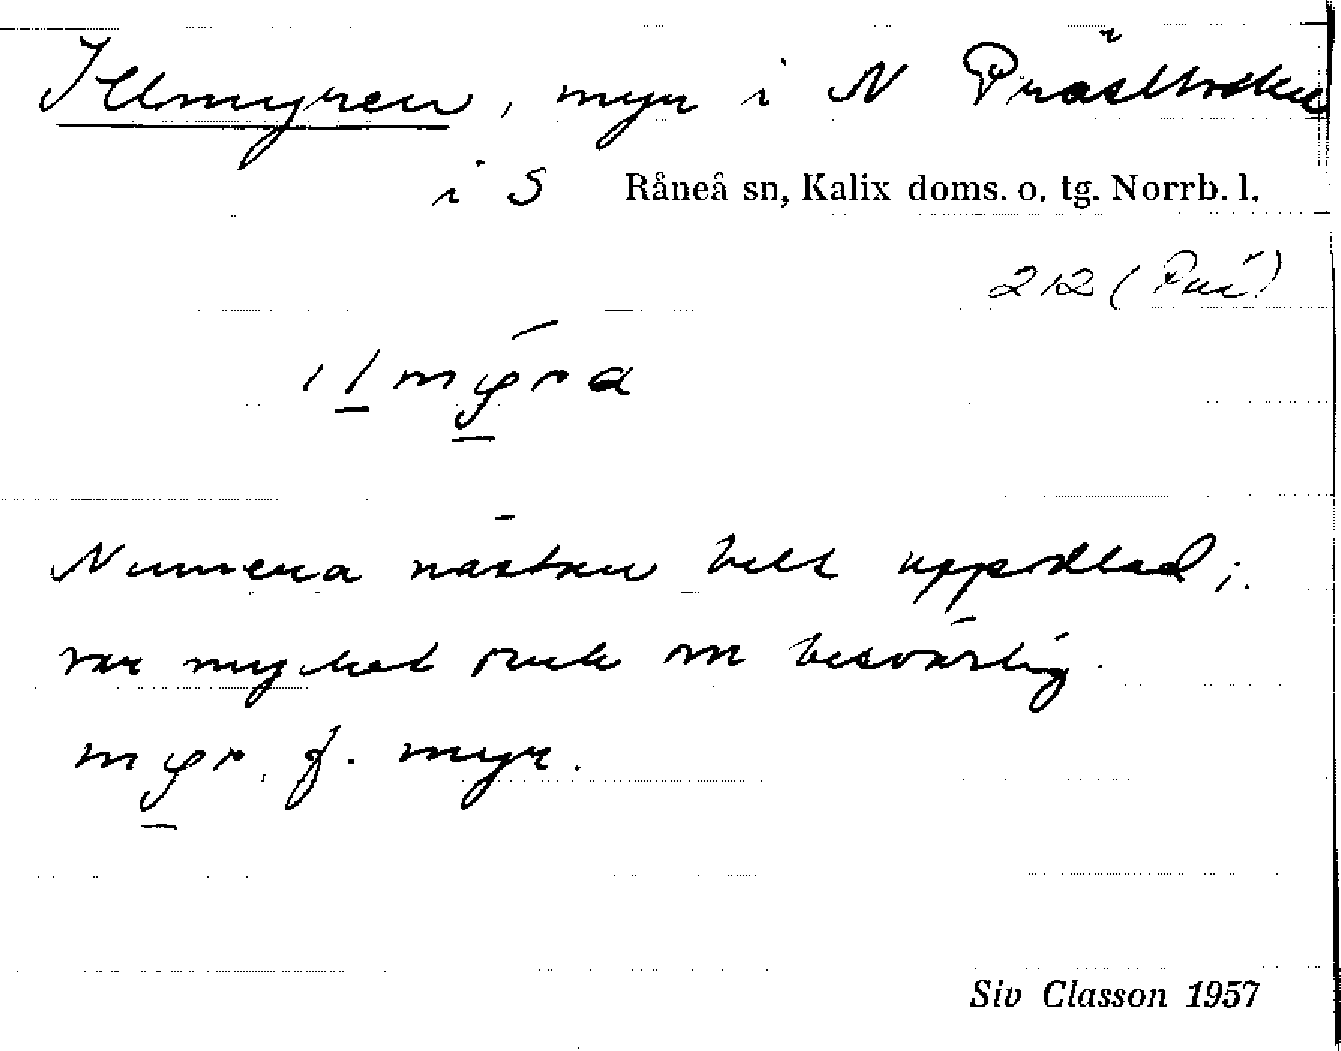 Illmyren, myr i N Prästholm
i S Råneå sn, Kalix doms. o. tg. Norrb. l.
212 (
ilmyra
Numera nästan helt uppodlad;
var mycket sank o besvärlig.
myr. f. myr.
Siv Classon 1957